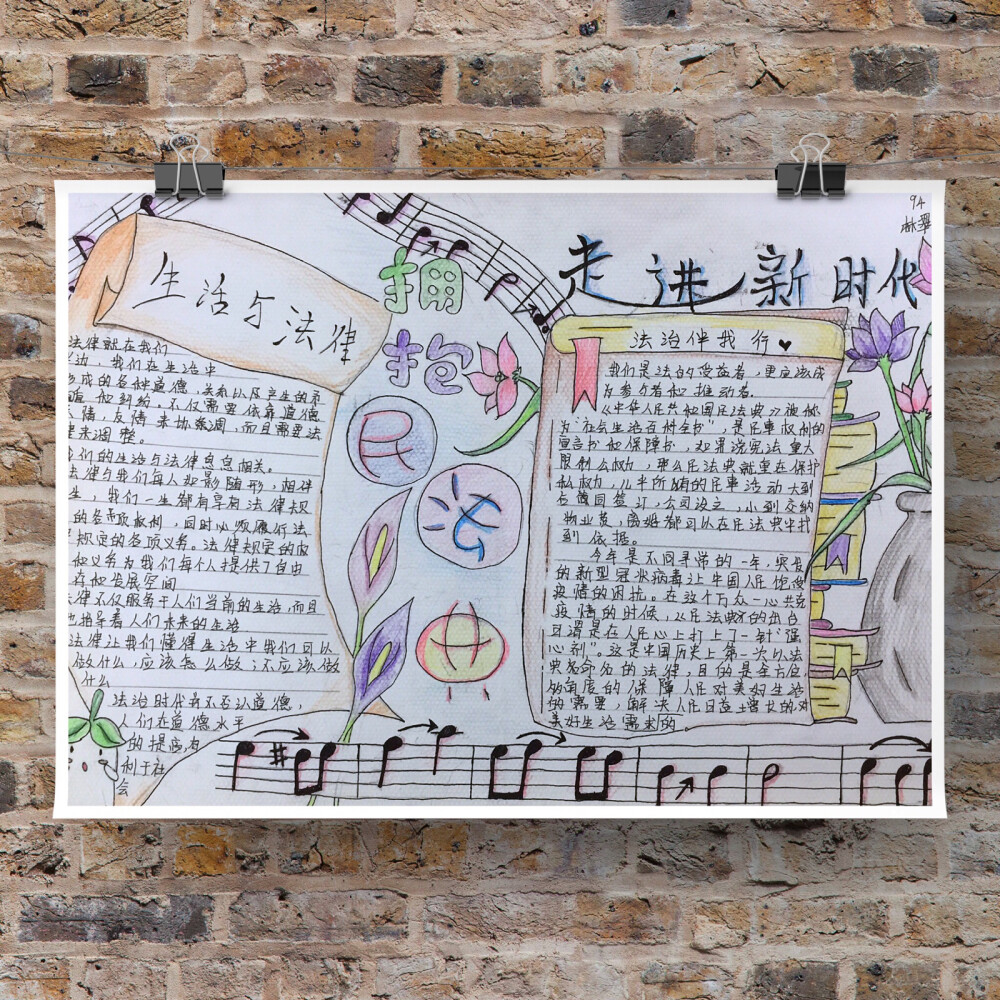 94
林
走进新时代
拥
抱
民
法
典
生活与法律
法律就在我们
边，我们在生活中
形成的各种道德，关系以及产生的矛
和纠纷，不仅需要依靠道德
情，友情来协调，而且需要法
律来调整。
我们的生活与法律息息相关。
法律与我们每人如影随形，相伴
生，我们一生都有享有法律规
的各项权利，同时必须履行法
规定的各项义务。法律规定的权
和义务为我们每个人提供了自由
存和发展空间
法律不仅服务于人们当前的生活，而且
也指导着人们未来的生活
法律让我们懂得生活中我们可以
做什么，应该怎么做；不应该做
什么
法治时代并不否认道德，
人们在道德水平
的提高有
利于社
会
法治伴我行
我们是法的受益者，更应该成
为参与者和推动者.
《中华人民共和国民法典》被称
为"社会生活百科全书"，是民事权利的
宣言书和保障书，如果说宪法重大
限制公权力，那么民法典就重在保护
私权力，几乎所有的民事活动大到
合同签订，公司设立，小到交纳
物业费，离婚都可以在民法典中找
到依据。
今年是不同寻常的一年，突袭
的新型冠状病毒让中国人民饱受
疫情的困扰。在这个万众一心共克
疫情的时候，《民法典》的出台
可谓是在人民心上打上了一针"强
心剂"。这是中国历史上第一次以法
典名命名的法律，目的是全方位
多角度的保障人民对美好生活
的需要，解决人民日益增长的对
美好生活需求的。